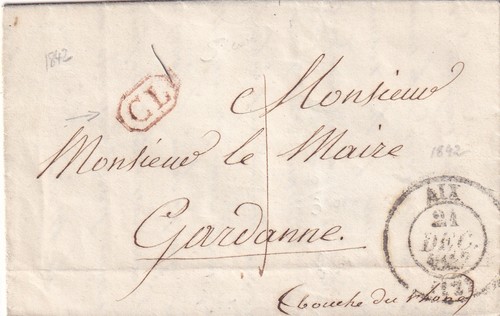 1842
CL
Monsieur
Monsieur le Maire
1842
Gardanne.
AIX
21
DEC.
1842
(12)
(bouche du Rhone)